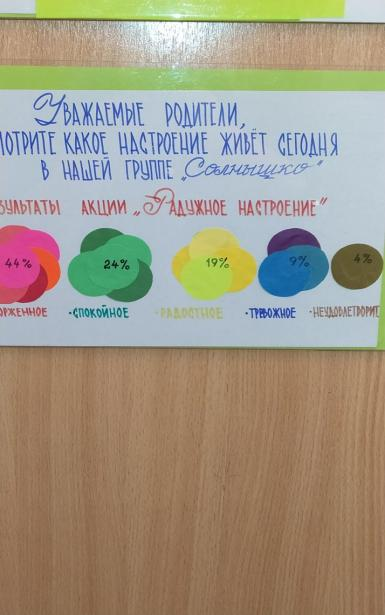 Уважаемые родители,
мотрите какое настроение живёт сегодня
в нашей группе „Солнышко"
зультаты акции „Радужное настроение"
44% 24% 19% 9% 4%
орженное ·спокойное ·радостное ·тревожное ·неудовлетворит